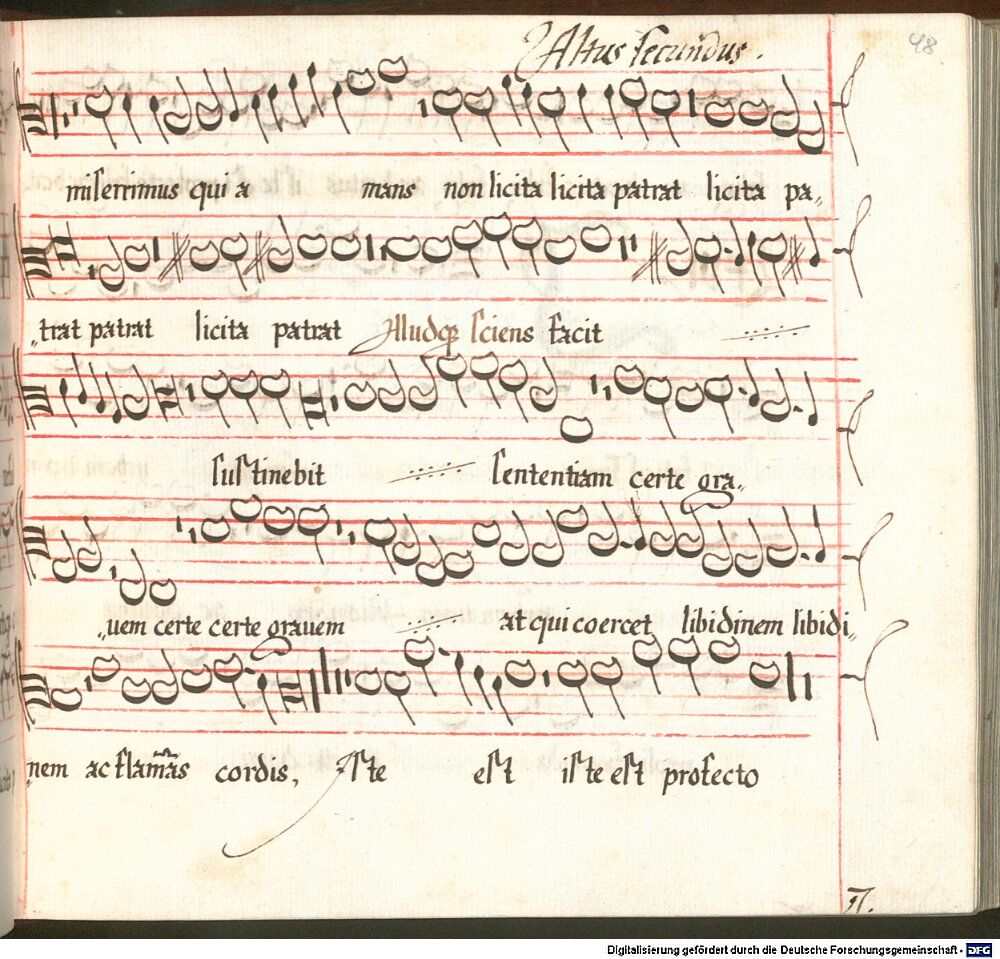 Altus secundus.
48
miserrimus qui a mans non licita licita patrat licita pa„
„trat patrat licita patrat Illudqȝ sciens facit
sustinebit sententiam certe gra„
„uem certe certe grauem at qui coercet libidinem libidi„
„nem ac flam̃as cordis, Iste est iste est profecto
Digitalisierung gefördert durch die Deutsche Forschungsgemeinschaft - DFG